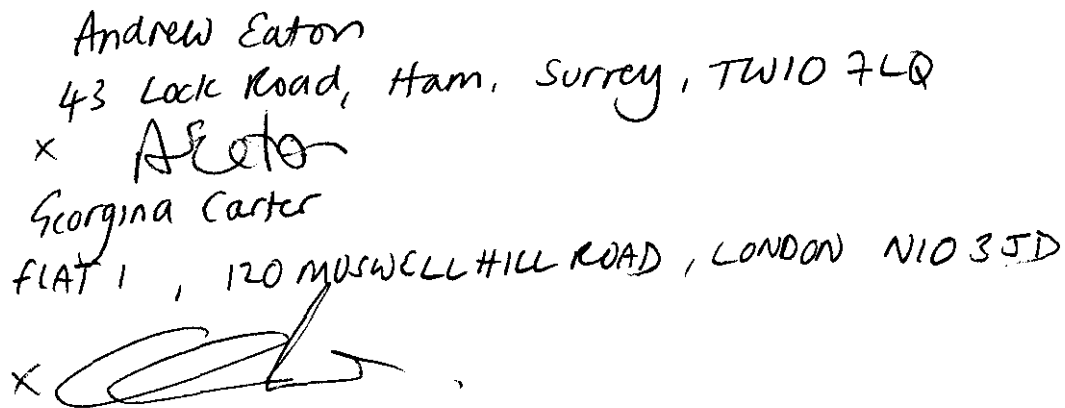 Andrew Eaton
43 Lock Road, Ham, Surrey, TW10 7LQ
x AEaton
Georgina Carter
FLAT 1, 120 MUSWELL HILL ROAD, LONDON N10 3JD
x